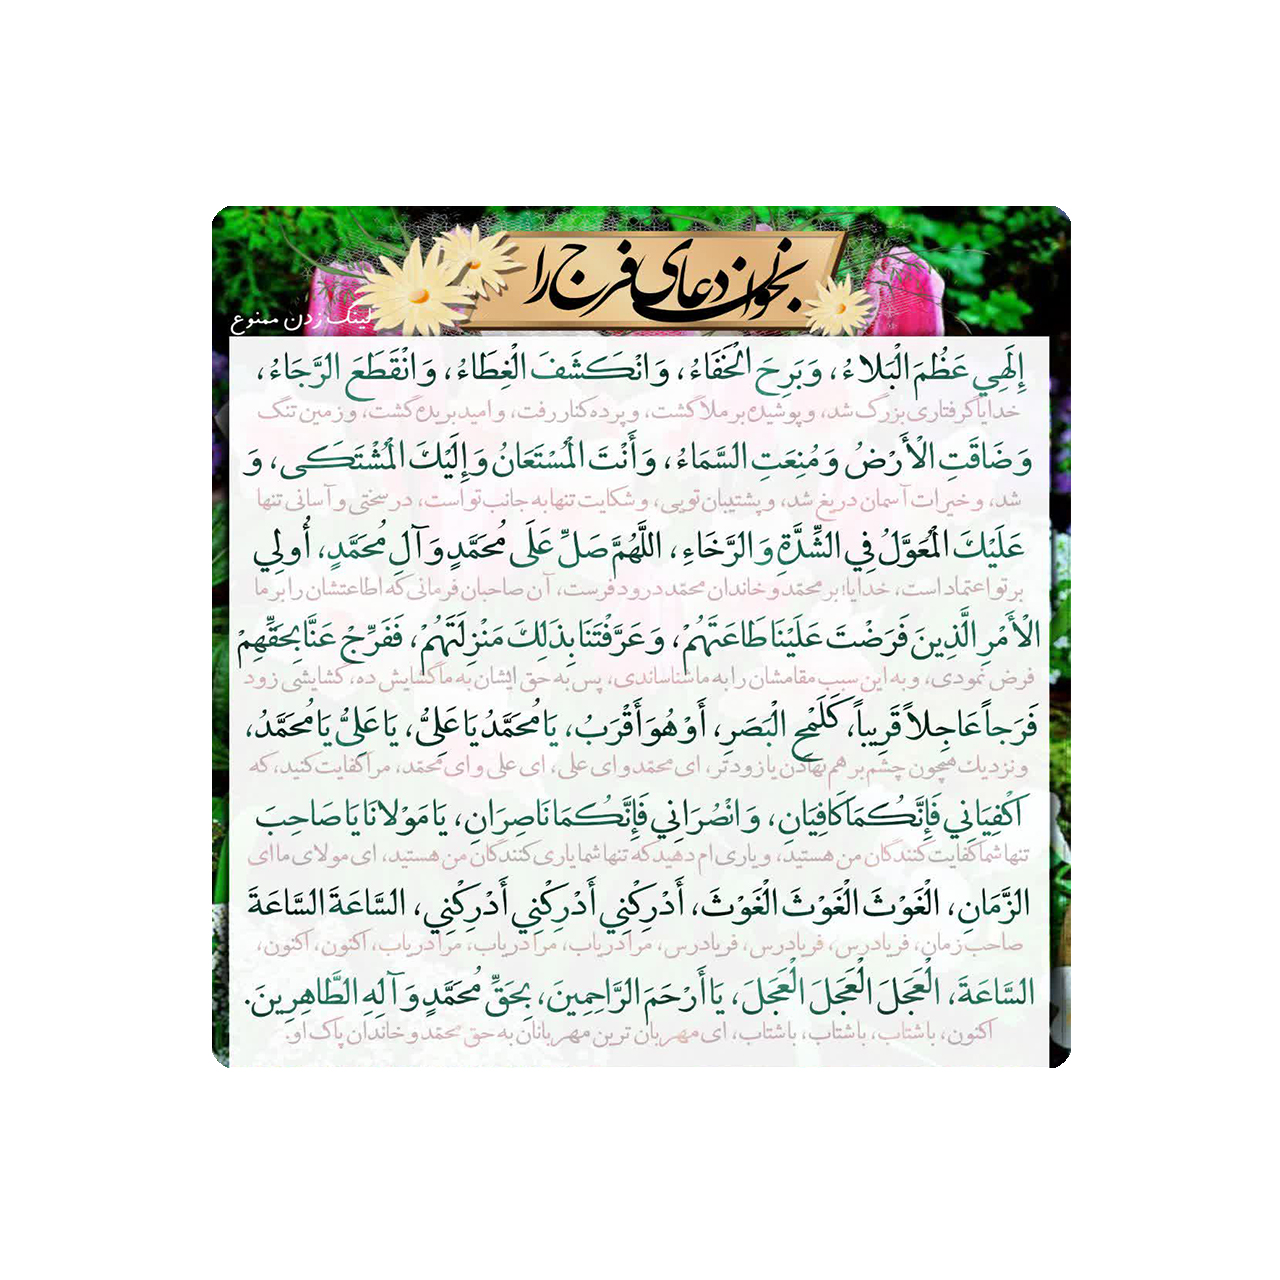 بخوان دعای فرج را
لینک زدن ممنوع
إِلَهِي عَظُمَ الْبَلاءُ، وَ بَرِحَ الْخَفَاءُ، وَ انْكَشَفَ الْغِطَاءُ، وَ انْقَطَعَ الرَّجَاءُ،
خدایا گرفتاری بزرگ شد، و پوشیده بر ملا گشت، و پرده کنار رفت، و امید بریده گشت، و زمین تنگ
وَ ضَاقَتِ الْأَرْضُ وَ مُنِعَتِ السَّمَاءُ، وَ أَنْتَ الْمُسْتَعَانُ وَ إِلَيْكَ الْمُشْتَكَى، وَ
شد، و خیرات آسمان دریغ شد، و پشتیبان تویی، و شکایت تنها به جانب تو است، در سختی و آسانی تنها
عَلَيْكَ الْمُعَوَّلُ فِي الشِّدَّةِ وَ الرَّخَاءِ، اللَّهُمَّ صَلِّ عَلَى مُحَمَّدٍ وَ آلِ مُحَمَّدٍ، أُولِي
بر تو اعتماد است، خدایا! بر محمّد و خاندان محمّد درود فرست، آن صاحبان فرمانی که اطاعتشان را بر ما
الْأَمْرِ الَّذِينَ فَرَضْتَ عَلَيْنَا طَاعَتَهُمْ، وَ عَرَّفْتَنَا بِذَلِكَ مَنْزِلَتَهُمْ، فَفَرِّجْ عَنَّا بِحَقِّهِمْ
فرض نمودی، و به این سبب مقامشان را به ما شناساندی، پس به حق ایشان به ما گشایش ده، گشایشی زود
فَرَجاً عَاجِلاً قَرِيباً، كَلَمْحِ الْبَصَرِ، أَوْ هُوَ أَقْرَبُ، يَا مُحَمَّدُ يَا عَلِيُّ، يَا عَلِيُّ يَا مُحَمَّدُ،
و نزدیک همچون چشم بر هم نهادن یا زودتر، ای محمّد و ای علی، ای علی و ای محمّد، مرا کفایت کنید، که
اكْفِيَانِي فَإِنَّكُمَا كَافِيَانِ، وَ انْصُرَانِي فَإِنَّكُمَا نَاصِرَانِ، يَا مَوْلانَا يَا صَاحِبَ
تنها شما کفایت کنندگان من هستید، و یاری ام دهید که تنها شما یاری کنندگان من هستید، ای مولای ما ای
الزَّمَانِ، الْغَوْثَ الْغَوْثَ الْغَوْثَ، أَدْرِكْنِي أَدْرِكْنِي أَدْرِكْنِي، السَّاعَةَ السَّاعَةَ
صاحب زمان، فریادرس، فریادرس، فریادرس، مرا دریاب، مرا دریاب، مرا دریاب، اکنون، اکنون،
السَّاعَةَ، الْعَجَلَ الْعَجَلَ الْعَجَلَ، يَا أَرْحَمَ الرَّاحِمِينَ، بِحَقِّ مُحَمَّدٍ وَ آلِهِ الطَّاهِرِينَ.
اکنون، باشتاب، باشتاب، باشتاب، ای مهربان ترین مهربانان به حق محمّد و خاندان پاک او.